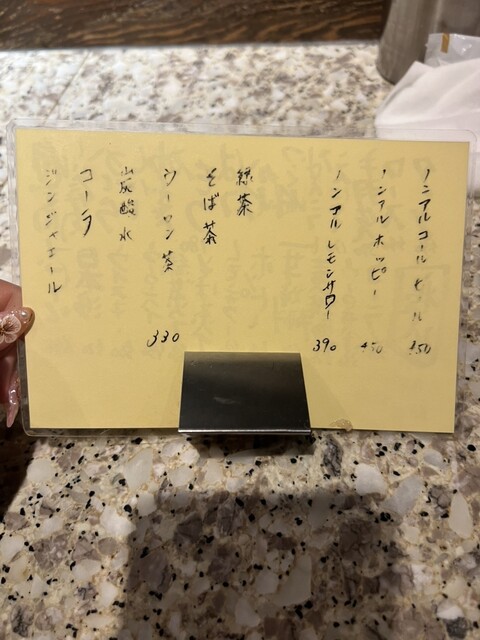 ノンアルコールビール 450
ノンアルホッピー 450
ノンアルレモンサワー 390
緑茶
そば茶
ウーロン茶 330
炭酸水
コーラ
ジンジャエール